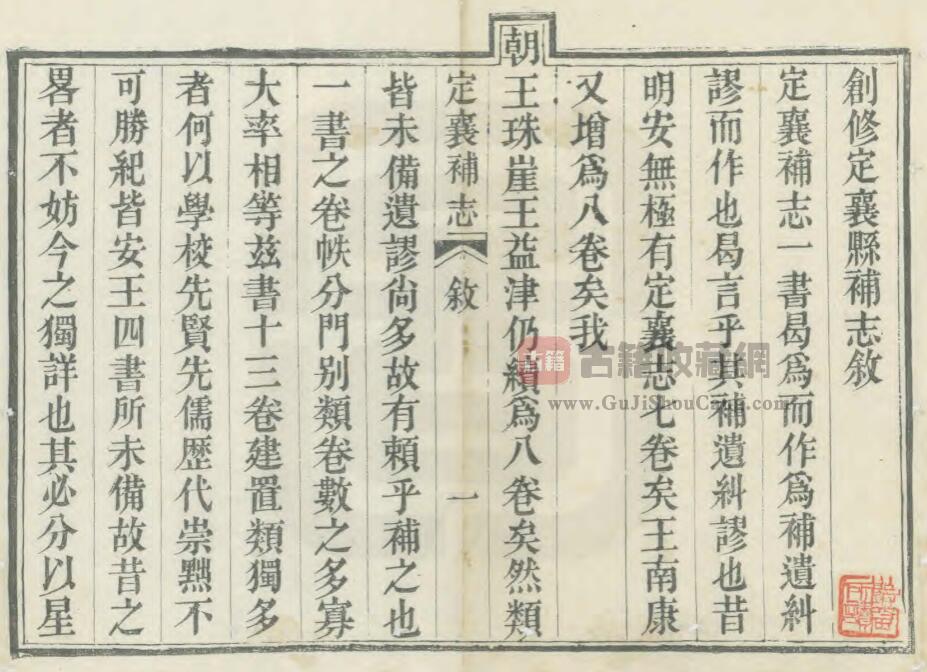 創修定襄縣補志敘
定襄補志一書曷爲而作爲補遺糾
謬而作也曷言乎其補遺糾謬也昔
明安無極有定襄志七卷矣王南康
又增爲八卷矣我
朝王珠崖王益津仍續爲八卷矣然類
定襄補志 敘 一
皆未備遺謬尙多故有賴乎補之也
一書之卷帙分門别類卷數之多寡
大率相等兹書十三卷建置類獨多
者何以學校先賢先儒歷代崇黜不
可勝紀皆安王四書所未備故昔之
畧者不妨今之獨詳也其必分以星
古籍 古籍收藏網
www.GuJiShouCang.com